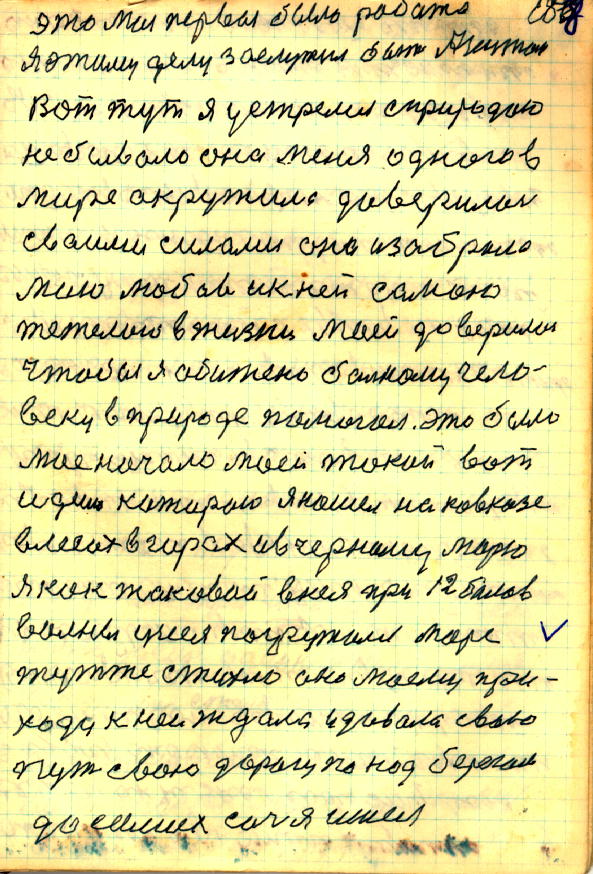 это моя первая была работа
я этому делу заслужил быть
Вот тут я устремился с природою
небывало она меня одного в
мире окружила доверилась
своими силами она избрала
мою любов ик ней самою
тежелою в жизни моей доверилась
чтобы я обижено болному чело-
веку в природе помогал. Это было
мое начало моей такой вот
идеи каторою я нашел на кавказе
в лесах в горах и в черному морю
я как таковой в нея при 12 балов
волны у нея погружался море
тут же стихло оно моему при-
ходу к ней ждала и давала свою
пут свою дорогу по над берегам
до самих соч я шел